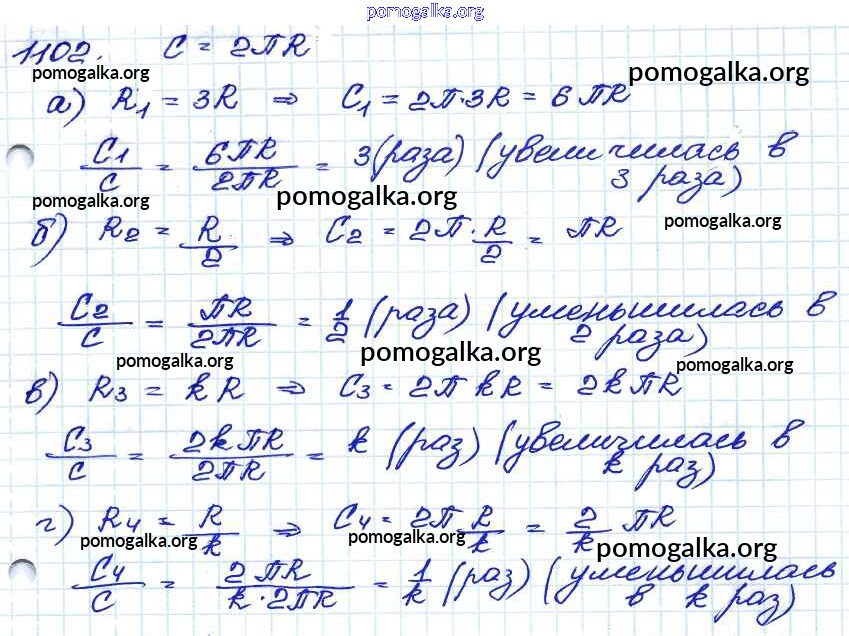 pomogalka.org
1102. C = 2πR
pomogalka.org pomogalka.org
а) R₁ = 3R ⇒ C₁ = 2π·3R = 6πR
C₁/C = 6πR/2πR = 3 (раза) (увеличилась в
3 раза)
pomogalka.org pomogalka.org pomogalka.org
б) R₂ = R/2 ⇒ C₂ = 2π·R/2 = πR
C₂/C = πR/2πR = 1/2 (раза) (уменьшилась в
2 раза)
pomogalka.org pomogalka.org pomogalka.org
в) R₃ = kR ⇒ C₃ = 2π kR = 2kπR
C₃/C = 2kπR/2πR = k (раз) (увеличилась в
k раз)
г) R₄ = R/k ⇒ C₄ = 2π R/k = 2/k πR
pomogalka.org pomogalka.org pomogalka.org
C₄/C = 2πR/k·2πR = 1/k (раз) (уменьшилась
в k раз)